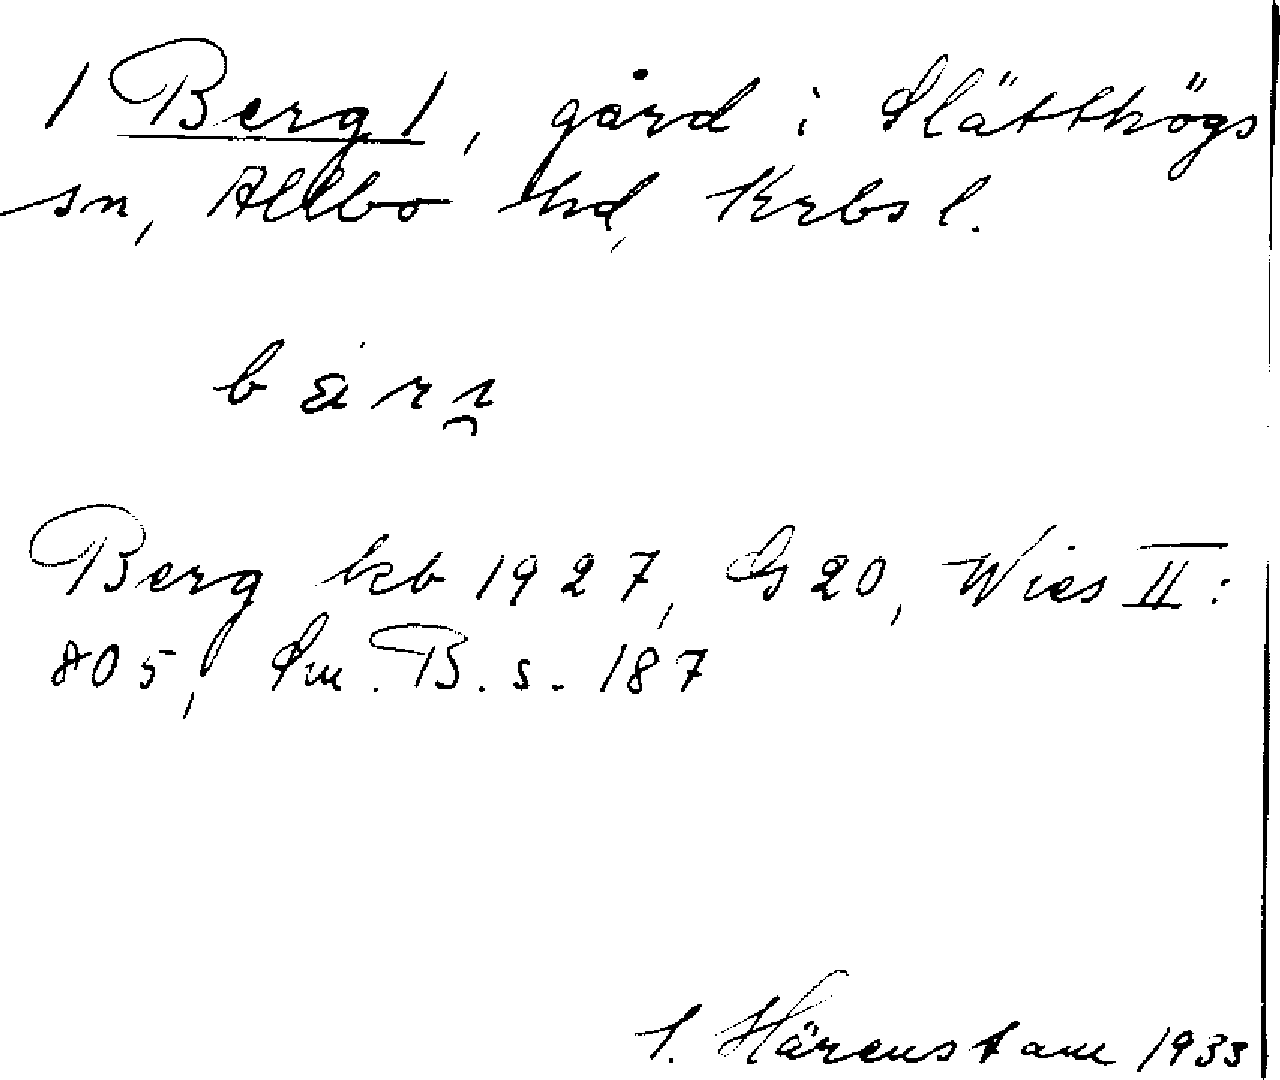 /Berg/, gård i Slätthögs
sn, Allbo hd, Krbsl.
Berg kb 1927, G 20, Wies II:
805, Sm. B. s. 187
S. Härenstam 1933